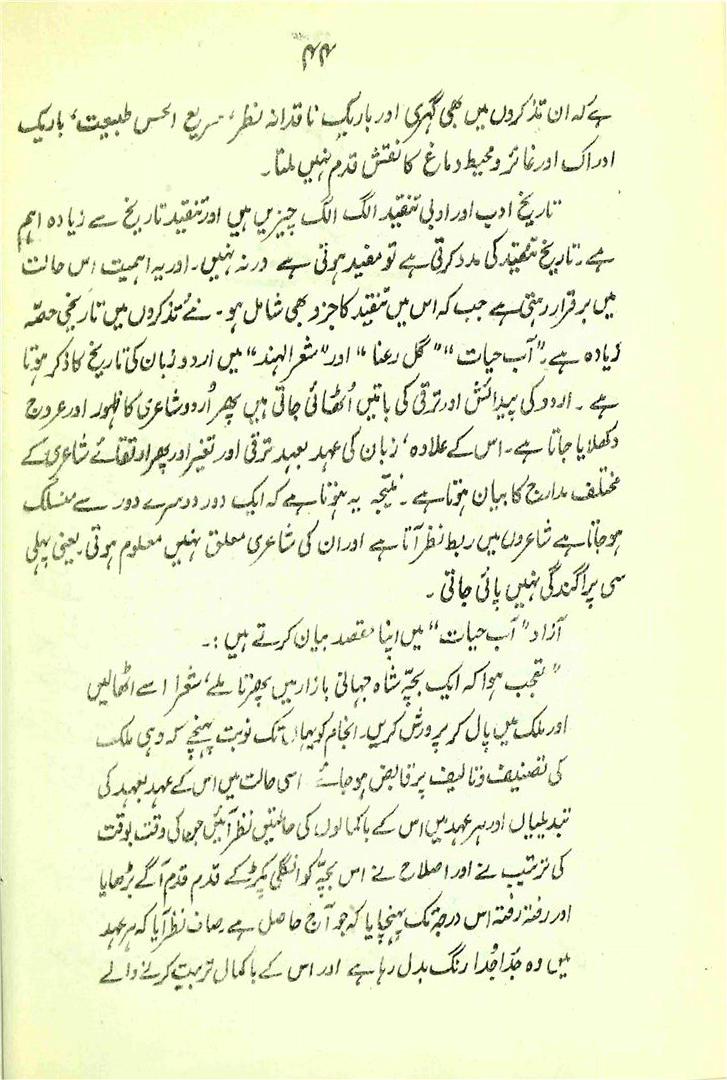 ۴۴
ہے کہ ان تذکروں میں بھی گہری اور باریک ناقدانہ نظر، سریع الحس طبیعت، باریک
ادراک اور غائر و محیط دماغ کا نقش قدم نہیں ملتا۔
تاریخ ادب اور ادبی تنقید الگ الگ چیزیں ہیں اور تنقید تاریخ سے زیادہ اہم
ہے۔ تاریخ تنقید کی مدد کرتی ہے تو مفید ہوتی ہے ورنہ نہیں۔ اور یہ اہمیت اس حالت
میں برقرار رہتی ہے جب کہ اس میں تنقید کا جزو بھی شامل ہو۔ نئے تذکروں میں تاریخی حصّہ
زیادہ ہے۔ "آب حیات" "گل رعنا" اور "شعر الہند" میں اردو زبان کی تاریخ کا ذکر ہوتا
ہے۔ اردو کی پیدائش اور ترقی کی باتیں اُٹھائی جاتی ہیں پھر اُردو شاعری کا ظہور اور عروج
دکھلایا جاتا ہے۔ اس کے علاوہ، زبان کی عہد بعہد ترقی اور تغیر اور پھر ارتقائے شاعری کے
مختلف مدارج کا بیان ہوتا ہے۔ نتیجہ یہ ہوتا ہے کہ ایک دور دوسرے دور سے منسلک
ہو جاتا ہے شاعروں میں ربط نظر آتا ہے اور ان کی شاعری معلق نہیں معلوم ہوتی۔ یعنی پہلی
سی پراگندگی نہیں پائی جاتی۔
آزاد "آب حیات" میں اپنا مقصد بیان کرتے ہیں:۔
"تعجب ہوا کہ ایک بچّہ شاہ جہانی بازار میں پھرتا ملے، شعرا اسے اٹھالیں
اور ملک میں پال کر پرورش کریں۔ انجام کو یہاں تک نوبت پہنچے کہ وہی ملک
کی تصنیف و تالیف پر قابض ہو جائے اسی حالت میں اس کے عہد بعہد کی
تبدیلیاں اور ہر عہد میں اس کے باکمالوں کی حالتیں نظر آئیں جن کی وقت بوقت
کی ترتیب نے اور اصلاح نے اس بچّہ کو انگلی پکڑ کے قدم قدم آگے بڑھایا
اور رفتہ رفتہ اس درجہ تک پہنچایا کہ جو آج حاصل ہے۔ صاف نظر آیا کہ ہر عہد
میں وہ جُدا جُدا رنگ بدل رہا ہے اور اس کے باکمال تربیت کرنے والے